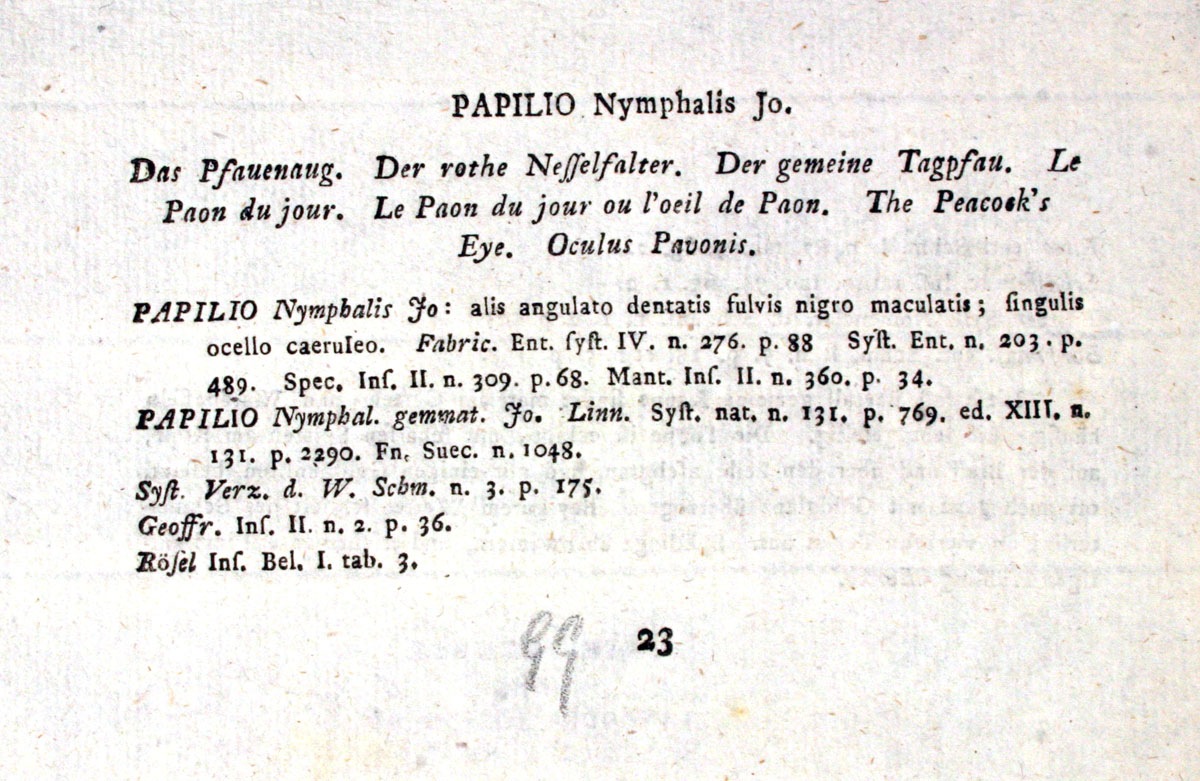 PAPILIO Nymphalis Jo.
Das Pfauenaug. Der rothe Neſſelfalter. Der gemeine Tagpfau. Le
Paon du jour. Le Paon du jour ou l'oeil de Paon. The Peacock's
Eye. Oculus Pavonis.
PAPILIO Nymphalis Jo: alis angulato dentatis fulvis nigro maculatis; ſingulis
ocello caeruleo. Fabric. Ent. ſyſt. IV. n. 276. p. 88 Syſt. Ent. n. 203. p.
489. Spec. Inſ. II. n. 309. p. 68. Mant. Inſ. II. n. 360. p. 34.
PAPILIO Nymphal. gemmat. Jo. Linn. Syſt. nat. n. 131. p. 769. ed. XIII. n.
131. p. 2290. Fn. Suec. n. 1048.
Syſt. Verz. d. W. Schm. n. 3. p. 175.
Geoffr. Inſ. II. n. 2. p. 36.
Röſel Inſ. Bel. I. tab. 3.
99 23